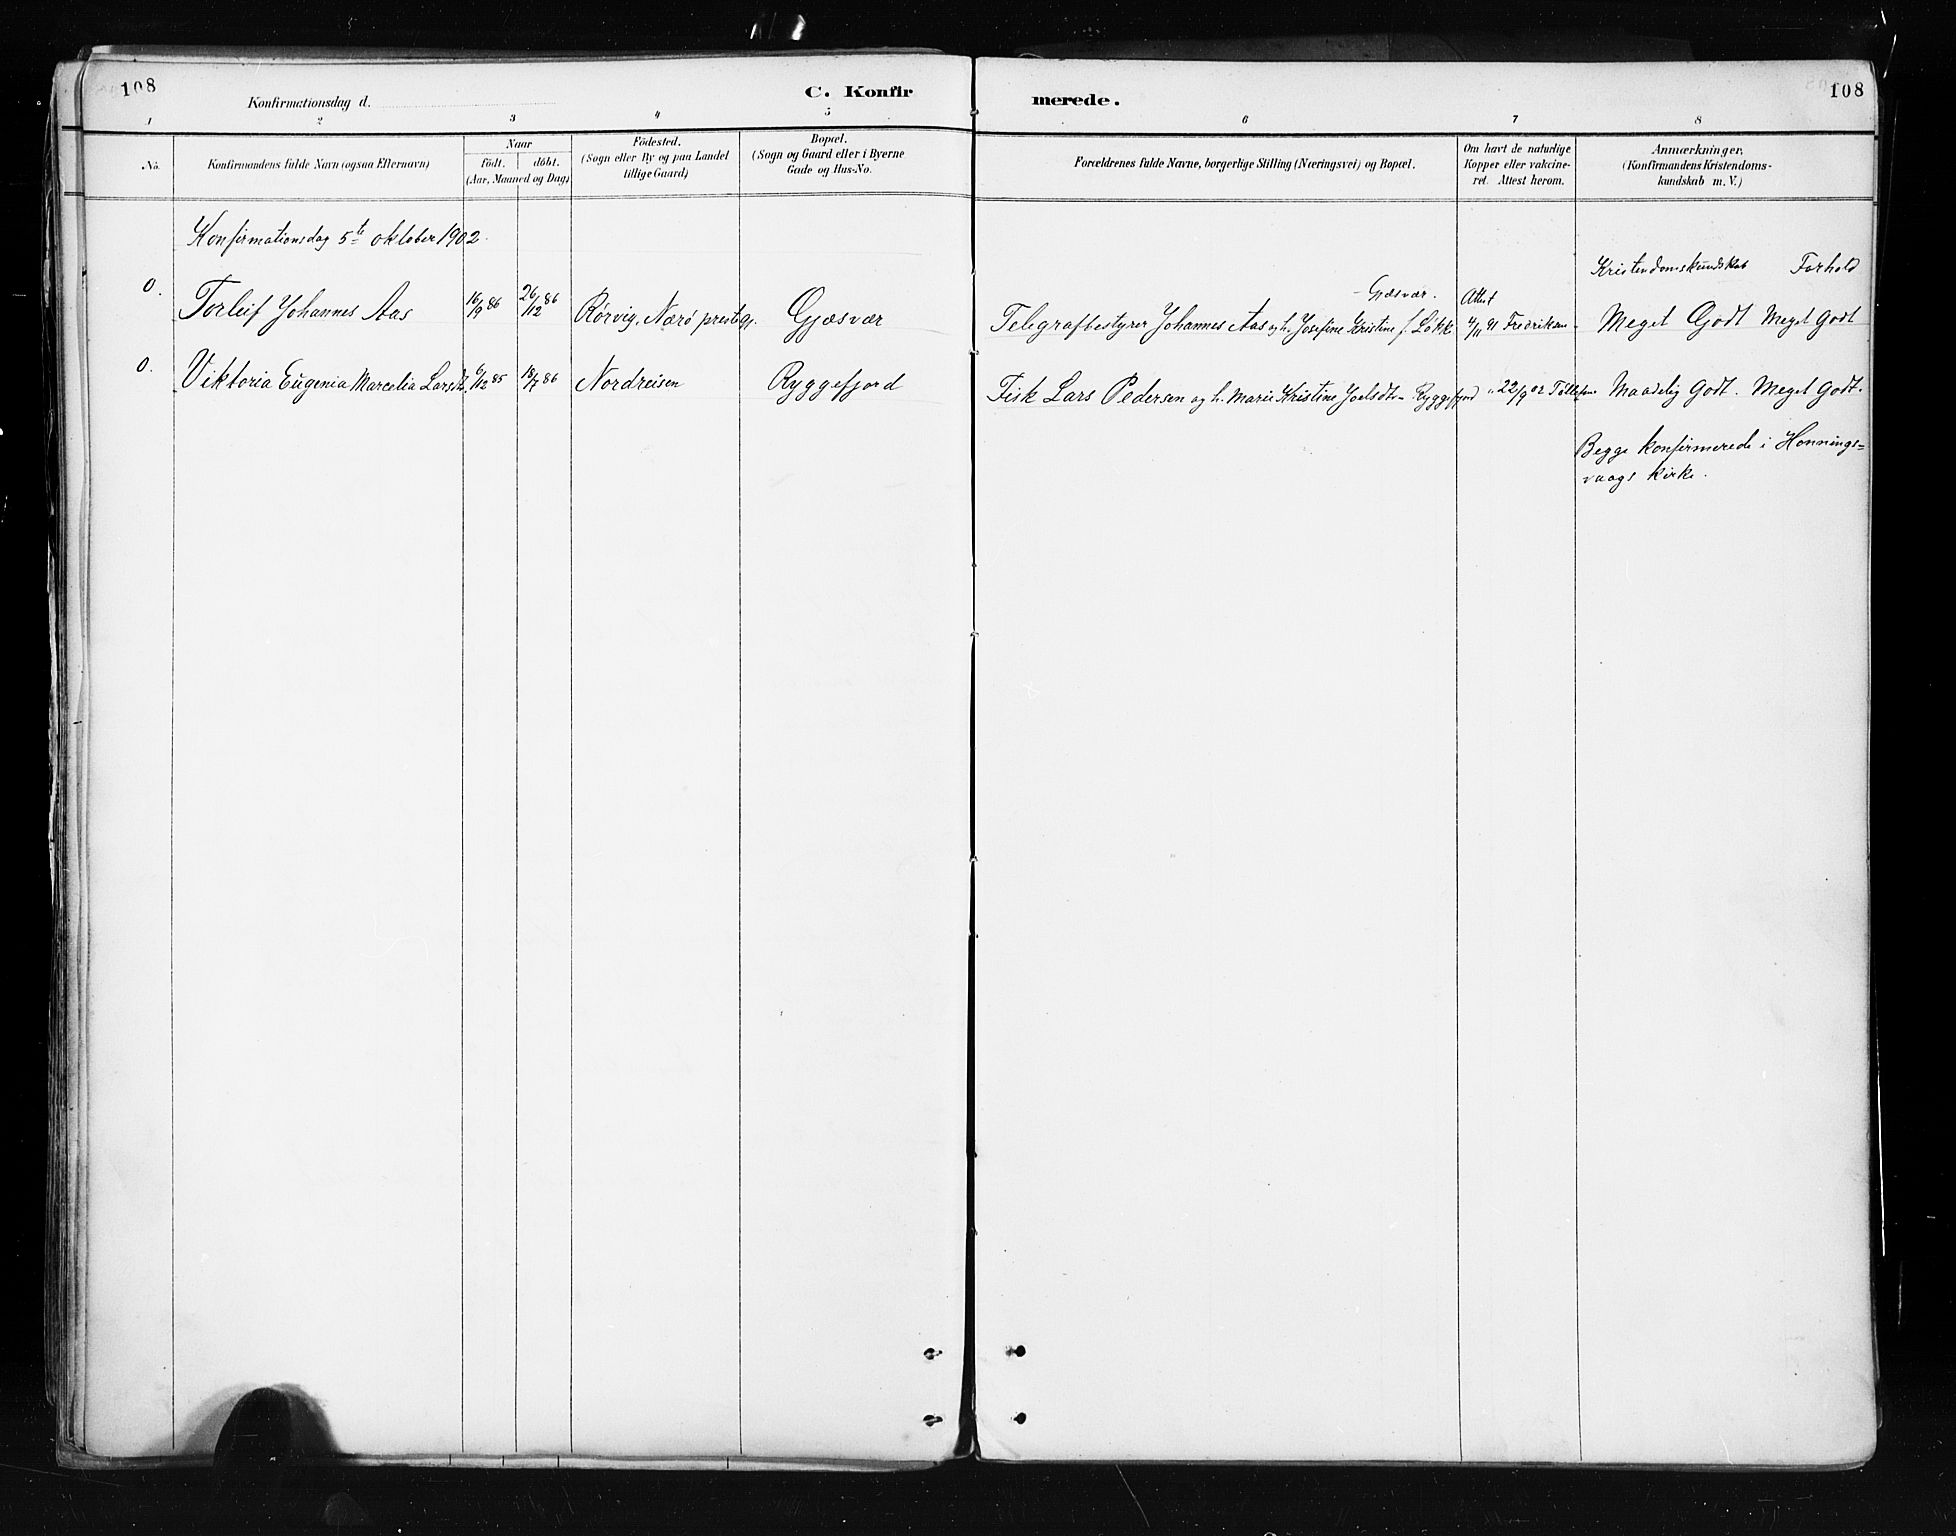 108
Konfirmationsdag d.
C. Konfir
merede.
108
1 2 3 4 5 6 7 8
No.
Konfirmandens fulde Navn (ogsaa Efternavn)
Naar
födt. döbt.
(Aar, Maaned og Dag)
Födested.
(Sogn eller By og paa Landet
tillige Gaard)
Bopæl.
(Sogn og Gaard eller i Byerne
Gade og Hus-No.
Forældrenes fulde Navne, borgerlige Stilling (Næringsvei) og Bopæl.
Om havt de naturlige
Kopper eller vakcine-
ret. Attest herom.
Anmærkninger,
(Konfirmandens Kristendoms-
kundskab m. V.)
Konfirmationsdag 5te oktober 1902.
Kristendomskundskab Forhold
0. Torleif Johannes Aas 16/9 86 26/12 86 Rörvig, Nærö prestegj. Gjæsvær
Telegrafbestyrer Johannes Aas og h. Josefine Kristine f. Løkke - Gjæsvær. Attest 4/11 91 Fredriksen Meget Godt Meget Godt
0. Viktoria Eugenia Marcelia Larsdtr. 6/12 85 18/7 86 Nordreisen Ryggefjord
Fisk Lars Pedersen og h. Marie Kristine Joelsdtr - Ryggefjord " 22/9 02 Tollefsen Maadelig Godt. Meget Godt.
Begge konfirmerede i Honnings=
vaags kirke.